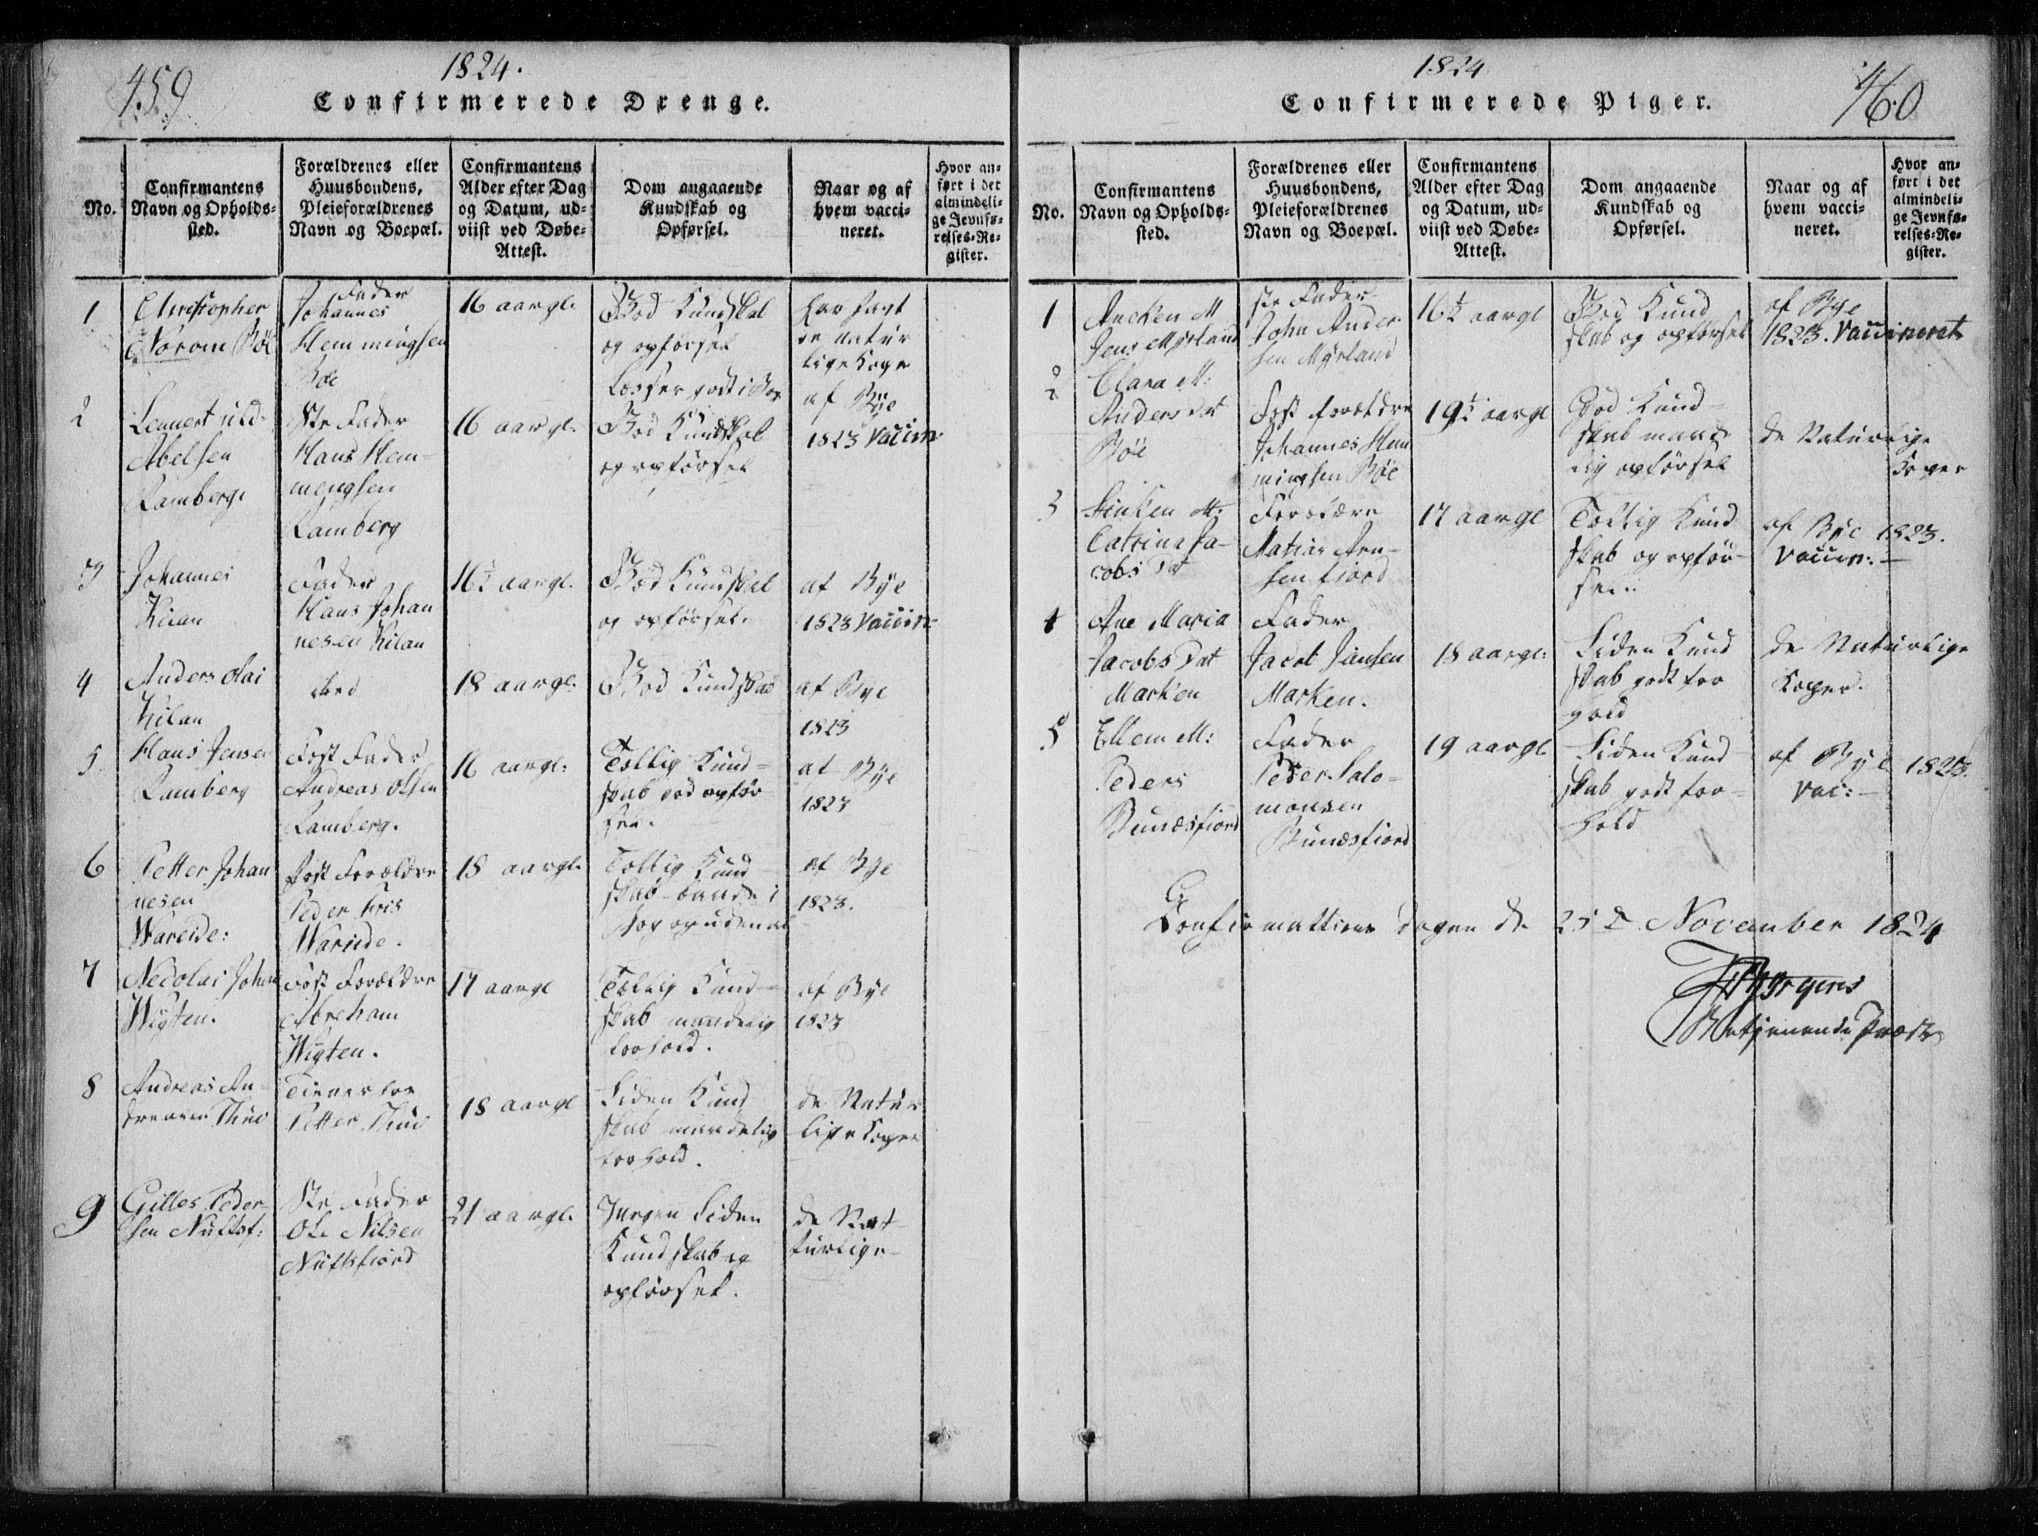 459
1824.
Confirmerede Drenge.
No.
Confirmantens
Navn og Opholds-
sted.
Forældrenes eller
Huusbondens,
Pleieforældrenes
Navn og Boepæl.
Confirmantens
Alder efter Dag
og Datum, ud-
viist ved Døbe-
Attest.
Dom angaaende
Kundskab og
Opførsel.
Naar og af
hvem vacci-
neret.
Hvor an-
ført i det
almindeli-
ge Jevnfø-
relses-Re-
gister.
1
Christopher
Bøe
Fader
Johannes
Hemmingsen
Bøe
16 aargl.
God Kundskab
og opførsel
læsser godt i Bog
har havt
de natur
lige Koper
2
Lennert
Abelsen
Ramberg
Ste Fader
Hans Hem-
mengsen
Ramberg
16 aargl.
God Kundskab
og opførsel
af Bye
1823 Vaccin
3
Johannes
Kilan
Fader
Hans Johan
nesen Kilan
16½ aargl.
God Kundskab
og opførsel.
af Bye
1823 Vaccin
4
Anders Olai
Kilan
18 aargl.
God Kundskab
af Bye
1823
5
Hans Jensen
Ramberg
Fost Fader
Andreas Olsen
Ramberg.
16 aargl:
Tollig Kund-
skab god opfør
sel.
af Bye
1823
6
Petter Johan
nesen
Wareide:
Fost Forældre
Peder
Wareide.
18 aargl.
Tollig Kund
skab baade i
Bog og udenad
af Bye
1823.
7
Necolai Johan
Wigten.
Fost Forældre
Abreham
Wigten.
17 aargl
Tollig Kund-
skab maadelig
forhold.
af Bye
1823
8
Andreas An-
Thue
Tiener hos
Petter Thue
18 aargl
Liden Kund
skab maadelig
forhold.
de Natur
lige Koper
9
Gilles Peder
sen Nultsf:
Ste Fader
Ole Nilsen
Nultsfiord
21 aargl.
Meget Liden
Kundskab og
opførsel.
de Nat-
turlige
1824
460
Confirmerede Piger.
No.
Confirmantens
Navn og Opholds-
sted.
Forældrenes eller
Huusbondens,
Pleieforældrenes
Navn og Boepæl.
Confirmantens
Alder efter Dag
og Datum, ud-
viist ved Døbe-
Attest.
Dom angaaende
Kundskab og
Opførsel.
Naar og af
hvem vacci-
neret.
Hvor an-
ført i det
almindeli-
ge Jevnfø-
relses-Re-
gister.
1
Aneken M
Jens Myrland
ste Fader
John Ander
sen Myrland
16½ aargl
God Kund
skab og opførsel
af Bye
1823. Vaccineret
2
Clara M:
Anders Dat
Bøe
Fost forældre
Johannes Hem
mingsen Bøe
19½ aargl
God Kund-
skab maade
lig opførsel
de Naturlige
Koper
3
M:
Catrina Ja-
cobs Dat
Forældre
Matias Aen-
sen fiord
17 aargl
Tollig Kund
skab og opfør-
sel.
af Bye 1823.
Vaccin:
4
Ane Maria
Jacobs Dat
Marken
Fader
Jacob Jansen
Marken.
18 aargl:
Liden Kund
skab godt for
hold
de Naturlige
Koper.
5
Ellen M:
Peders
Bunæsfiord
Fader
Peder Salo-
monsen
Bunæsfiord
19 aargl
Liden Kund
skab godt for-
hold
af Bye 1823.
Vac:
Confirmations dagen d. 25 November 1824
Betjenende Præst